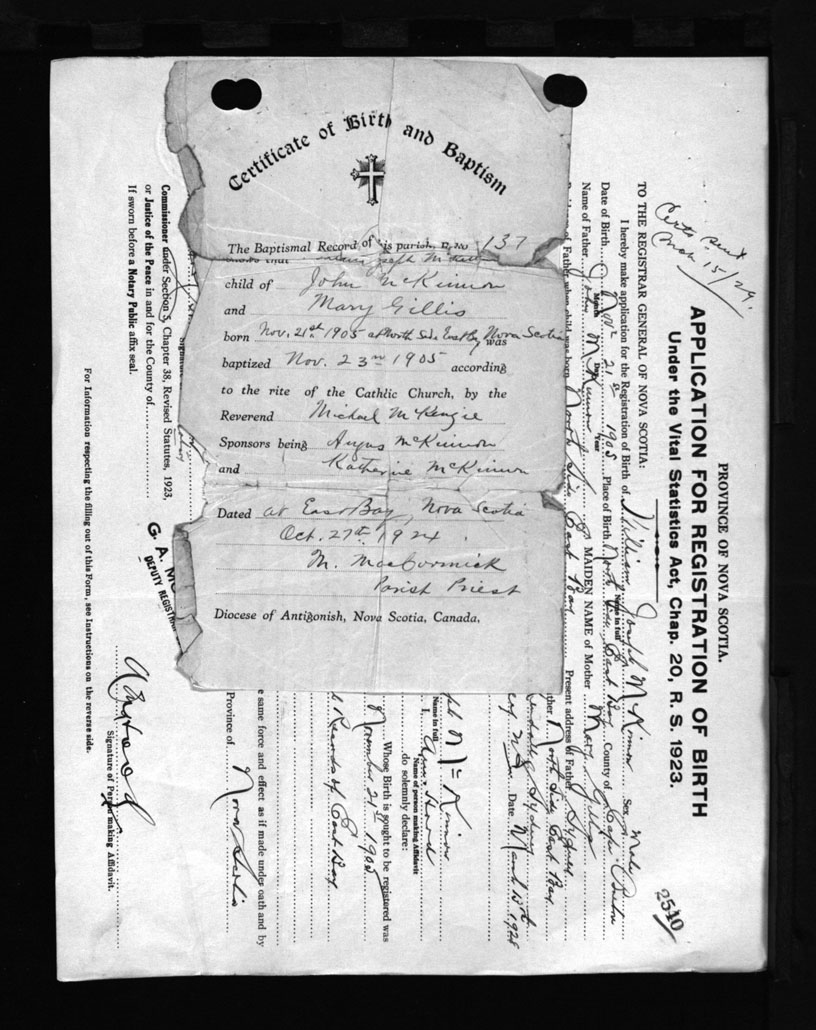 Certificate of Birth and Baptism
The Baptismal Record of this parish, 137
child of John McKinnon
and Mary Gillis
born Nov. 21st 1905 at North Side East Bay Nova Scotia was
baptized Nov. 23rd 1905 according
to the rite of the Cathlic Church, by the
Reverend Michael McKenzie
Sponsors being Angus McKinnon
and Katherine McKinnon
Dated at East Bay, Nova Scotia
Oct. 27th 1924.
M. MacCormick
Parish Priest
Diocese of Antigonish, Nova Scotia, Canada,
2540
PROVINCE OF NOVA SCOTIA.
APPLICATION FOR REGISTRATION OF BIRTH
Under the Vital Statistics Act, Chap. 20, R. S. 1923.
Certs sent
Mch 15/29.
TO THE REGISTRAR GENERAL OF NOVA SCOTIA:
I hereby make application for the Registration of Birth of William Joseph McKinnon Sex Male
Name in full
Date of Birth Nov 21st 1905 Place of Birth North Side East Bay County of Cape Breton
Month Day Year
Name of Father John McKinnon MAIDEN NAME of Mother Mary Gillis
Residence of Father when child was born North Side East Bay Present address of Father Sydney
North Side East Bay
Sydney
Date March 15th
Name in full
I,
Name of person making Affidavit
do solemnly declare:
Whose Birth is sought to be registered was
November 21st 1905
East Bay
e same force and effect as if made under oath and by
Province of Nova Scotia
Signature of Person making Affidavit.
G. A. M
DEPUTY REGISTRAR
Commissioner under Section 5, Chapter 38, Revised Statutes, 1923,
or Justice of the Peace in and for the County of
If sworn before a Notary Public affix seal.
For Information respecting the filling out of this Form, see Instructions on the reverse side.